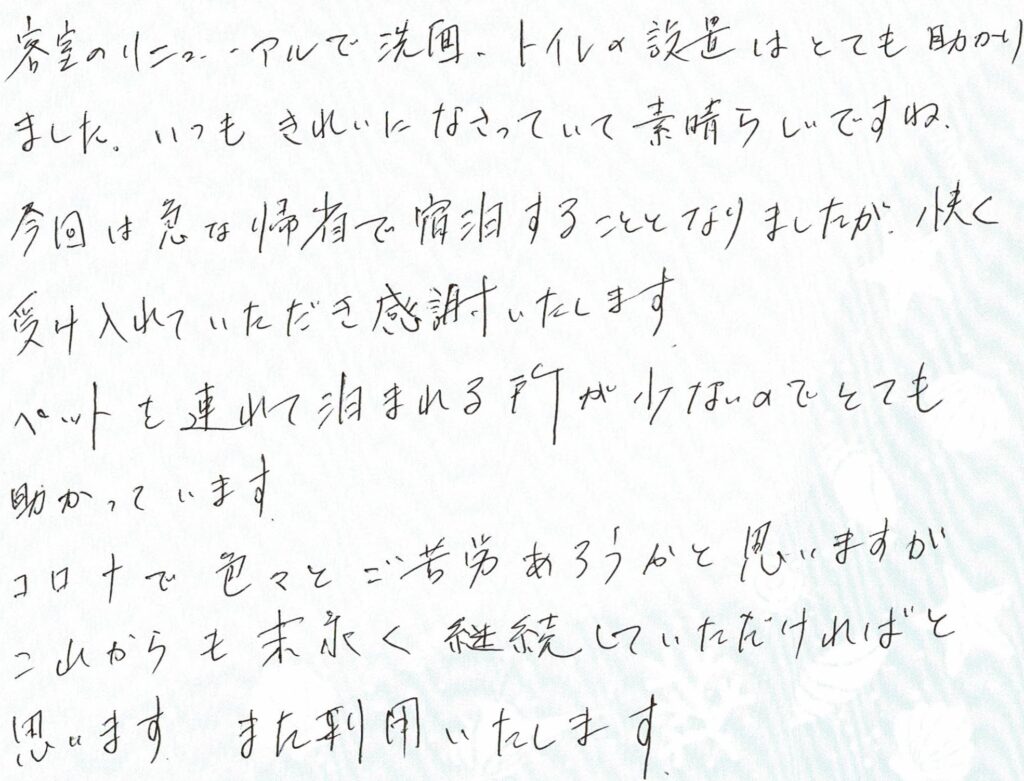 客室のリニューアルで洗面、トイレの設置はとても助かり
ました。いつもきれいになさっていて素晴らしいですね。
今回は急な帰省で宿泊することとなりましたが、快く
受け入れていただき感謝いたします。
ペットを連れて泊まれる所が少ないのでとても
助かっています。
コロナで色々とご苦労あろうかと思いますが
これからも末永く継続していただければと
思います。また利用いたします。